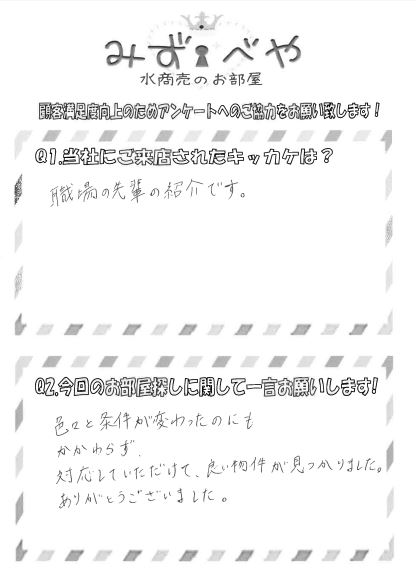 みずべや
水商売のお部屋
顧客満足度向上のためアンケートへのご協力をお願い致します！
Q1.当社にご来店されたキッカケは？
職場の先輩の紹介です。
Q2.今回のお部屋探しに関して一言お願いします!
色々と条件が変わったのにも
かかわらず、
対応していただけて、良い物件が見つかりました。
ありがとうございました。